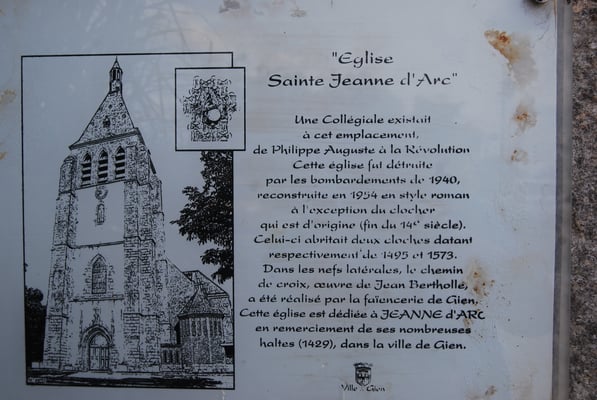 "Eglise
Sainte Jeanne d'Arc"
Une Collégiale existait
à cet emplacement,
de Philippe Auguste à la Révolution
Cette église fut détruite
par les bombardements de 1940,
reconstruite en 1954 en style roman
à l'exception du clocher
qui est d'origine (fin du 14e siècle).
Celui-ci abritait deux cloches datant
respectivement de 1495 et 1573.
Dans les nefs latérales, le chemin
de croix, œuvre de Jean Bertholle,
a été réalisé par la faïencerie de Gien.
Cette église est dédiée à JEANNE d'ARC
en remerciement de ses nombreuses
haltes (1429), dans la ville de Gien.
Ville de Gien